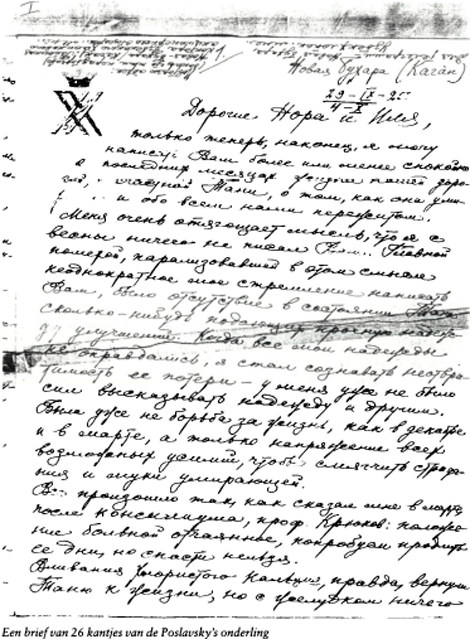 I
Новая Бухара (Каган)
29-IX-25
4-X
Дорогие Нора и Илья,
только теперь, наконец, я могу
написать Вам более или менее спокойно
о последних месяцах жизни нашей доро-
гой, Тани, о том, как она уми-
и обо всем нами пережитом.
Меня очень отягощает мысль, что я с
весны ничего не писал Вам. Главной
помехой, парализовавшей в этом смысле
неоднократное мое стремление написать
Вам, было отсутствие в состоянии Тани
сколько-нибудь подающих прочную надеж-
ду улучшений. Когда все мои надежды
не оправдались, я стал сознавать неотвра-
тимость ее потери - у меня уже не было
сил высказывать надежду и другим.
Была уже не борьба за жизнь, как в декабре
и в марте, а только напряжение всех
возможных усилий, чтобы смягчить страда-
ния и муки умирающей.
Все произошло так, как сказал мне в марте
после консилиума, проф. Крюков: положе-
ние больной отчаянное, попробуем продлить
ее дни, но спасти нельзя.
Вливания хлористого кальция, правда, вернули
Таню к жизни, но с желудком ничего
Een brief van 26 kantjes van de Poslavsky's onderling